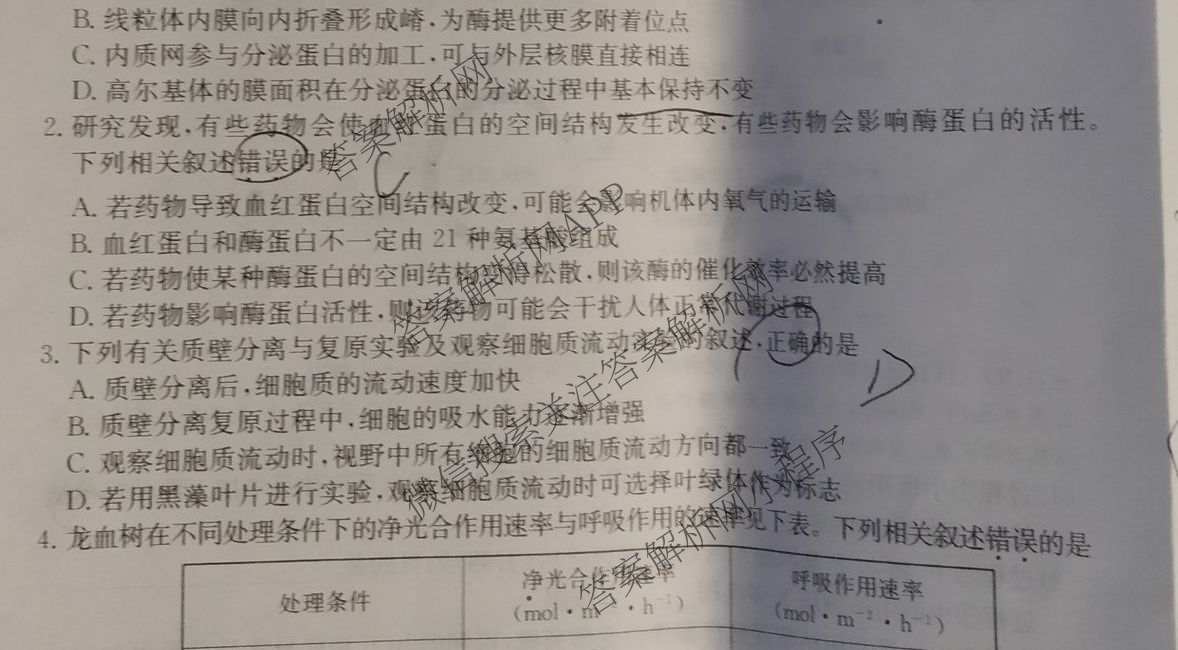 B. 线粒体内膜向内折叠形成嵴,为酶提供更多附着位点
C. 内质网参与分泌蛋白的加工,可与外层核膜直接相连
D. 高尔基体的膜面积在分泌蛋白的分泌过程中基本保持不变
2. 研究发现,有些药物会使血红蛋白的空间结构发生改变,有些药物会影响酶蛋白的活性。
下列相关叙述错误的是
C
A. 若药物导致血红蛋白空间结构改变,可能会影响机体内氧气的运输
B. 血红蛋白和酶蛋白不一定由 21 种氨基酸组成
C. 若药物使某种酶蛋白的空间结构变得松散,则该酶的催化效率必然提高
D. 若药物影响酶蛋白活性,则该药物可能会干扰人体正常代谢过程
3. 下列有关质壁分离与复原实验及观察细胞质流动实验的叙述,正确的是
D
A. 质壁分离后,细胞质的流动速度加快
B. 质壁分离复原过程中,细胞的吸水能力逐渐增强
C. 观察细胞质流动时,视野中所有细胞的细胞质流动方向都一致
D. 若用黑藻叶片进行实验,观察细胞质流动时可选择叶绿体作为标志
4. 龙血树在不同处理条件下的净光合作用速率与呼吸作用的速率见下表。下列相关叙述错误的是
处理条件
净光合作用速率
(mol·m ·h⁻¹)
呼吸作用速率
(mol·m⁻²·h⁻¹)
答案解析网
答案解析网APP
微信搜索关注答案解析网
答案解析网小程序